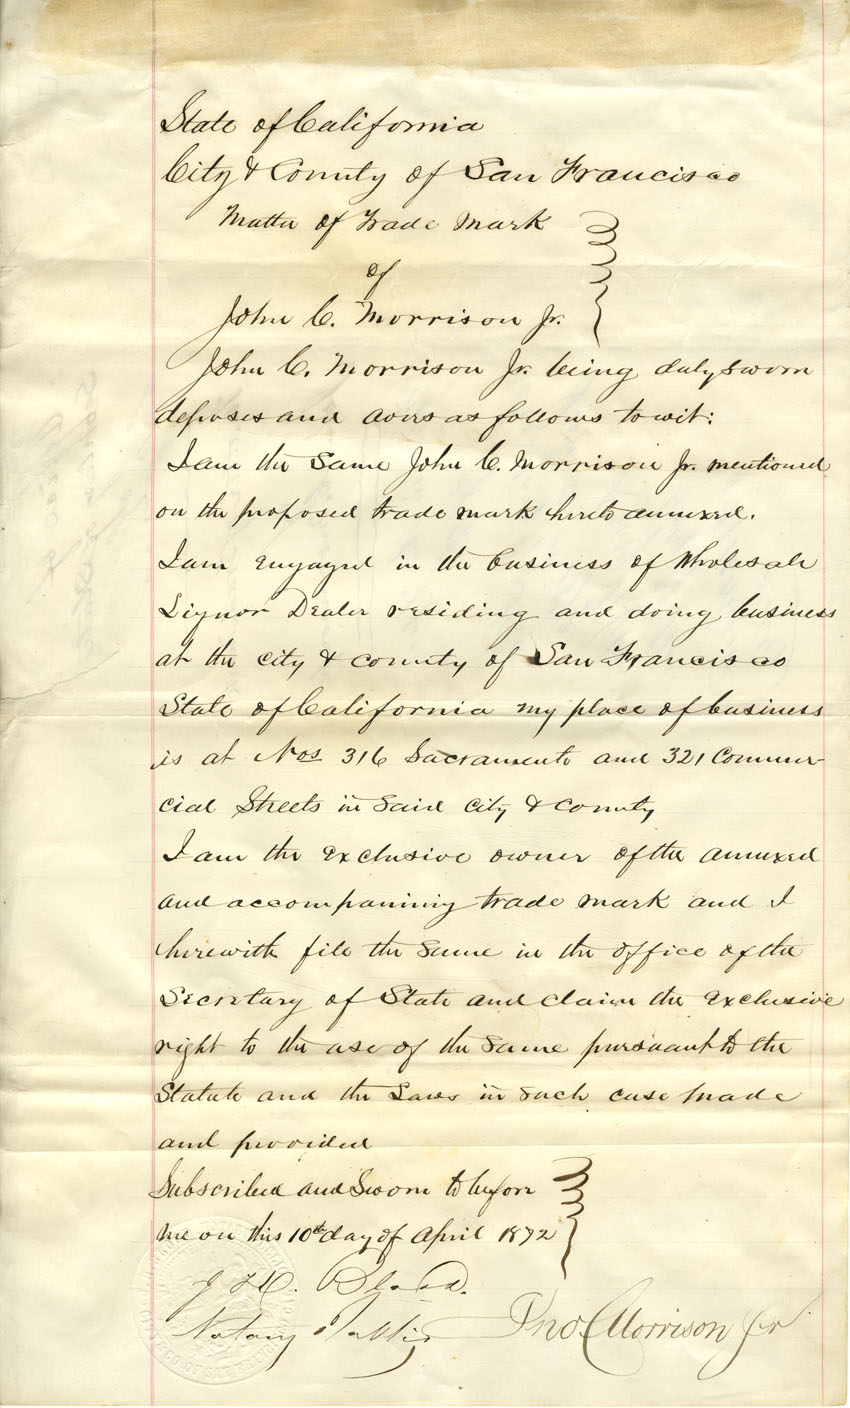 State of California
City & County of San Francisco
Matter of Trade Mark
of
John C. Morrison Jr.
John C. Morrison Jr. being duly sworn
deposes and avers as follows to wit:
I am the Same John C. Morrison Jr. mentioned
on the proposed trade mark hereto annexed.
I am engaged in the business of Wholesale
Liquor Dealer residing and doing business
at the city & county of San Francisco
State of California my place of business
is at Nos 316 Sacramento and 321 Commer-
cial Streets in said City & County
I am the exclusive owner of the annexed
and accompaning trade mark and I
herewith file the same in the office of the
Secretary of State and claim the exclusive
right to the use of the same pursuant to the
Statute and the Laws in such case made
and provided
Subscribed and Sworn to before
me on this 10th day of April 1872
J H. Blood.
Notary Public
Jno C Morrison Jr